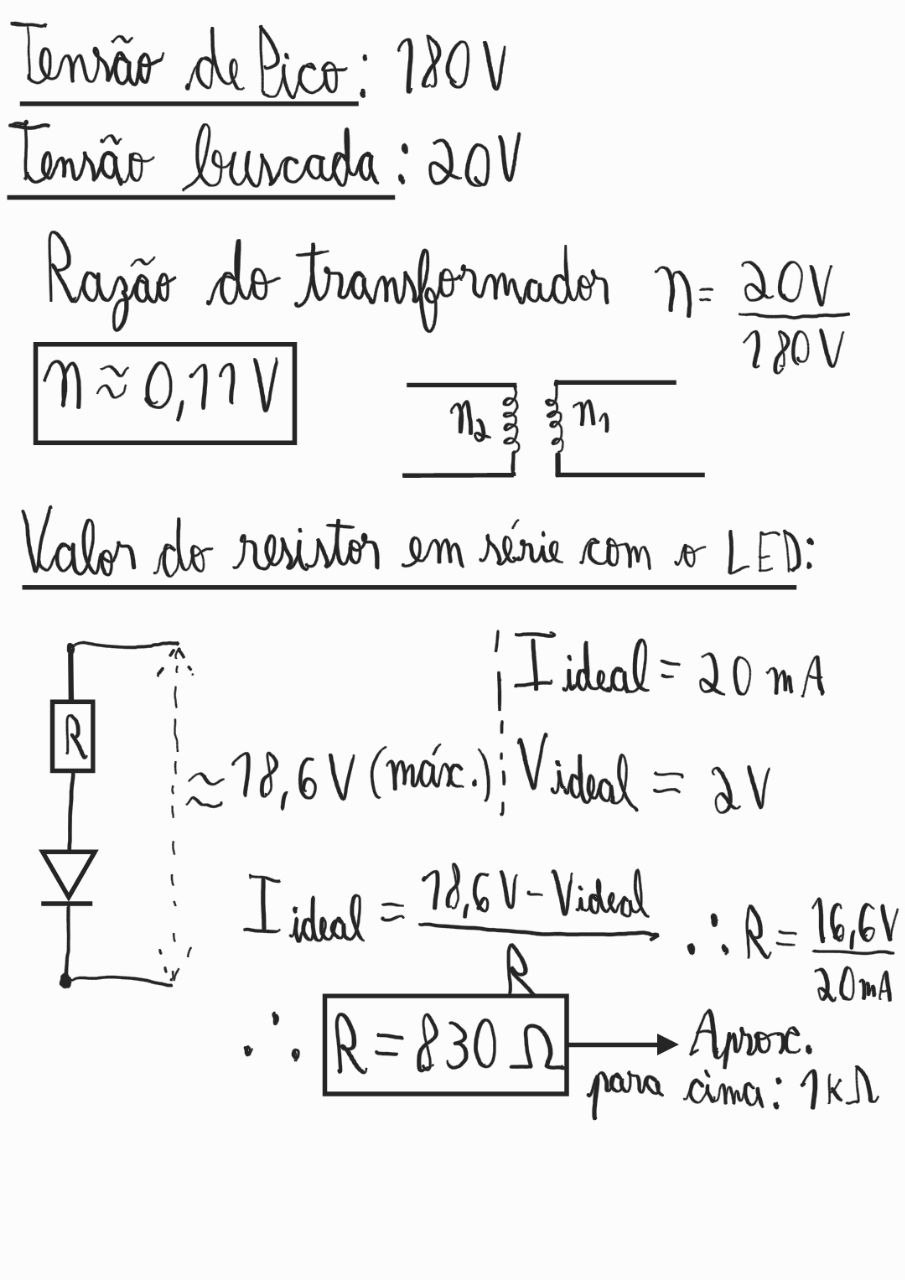 Tensão de Pico: 180V
Tensão buscada: 20V
Razão do transformador n = 20V / 180V
n ≈ 0,11 V
n2 n1
Valor do resistor em série com o LED:
I ideal = 20 mA
R
≈ 18,6 V (máx.) V ideal = 2V
I ideal = 18,6 V - V ideal / R ∴ R = 16,6V / 20mA
∴ R = 830 Ω → Aprox.
para cima: 1kΩ